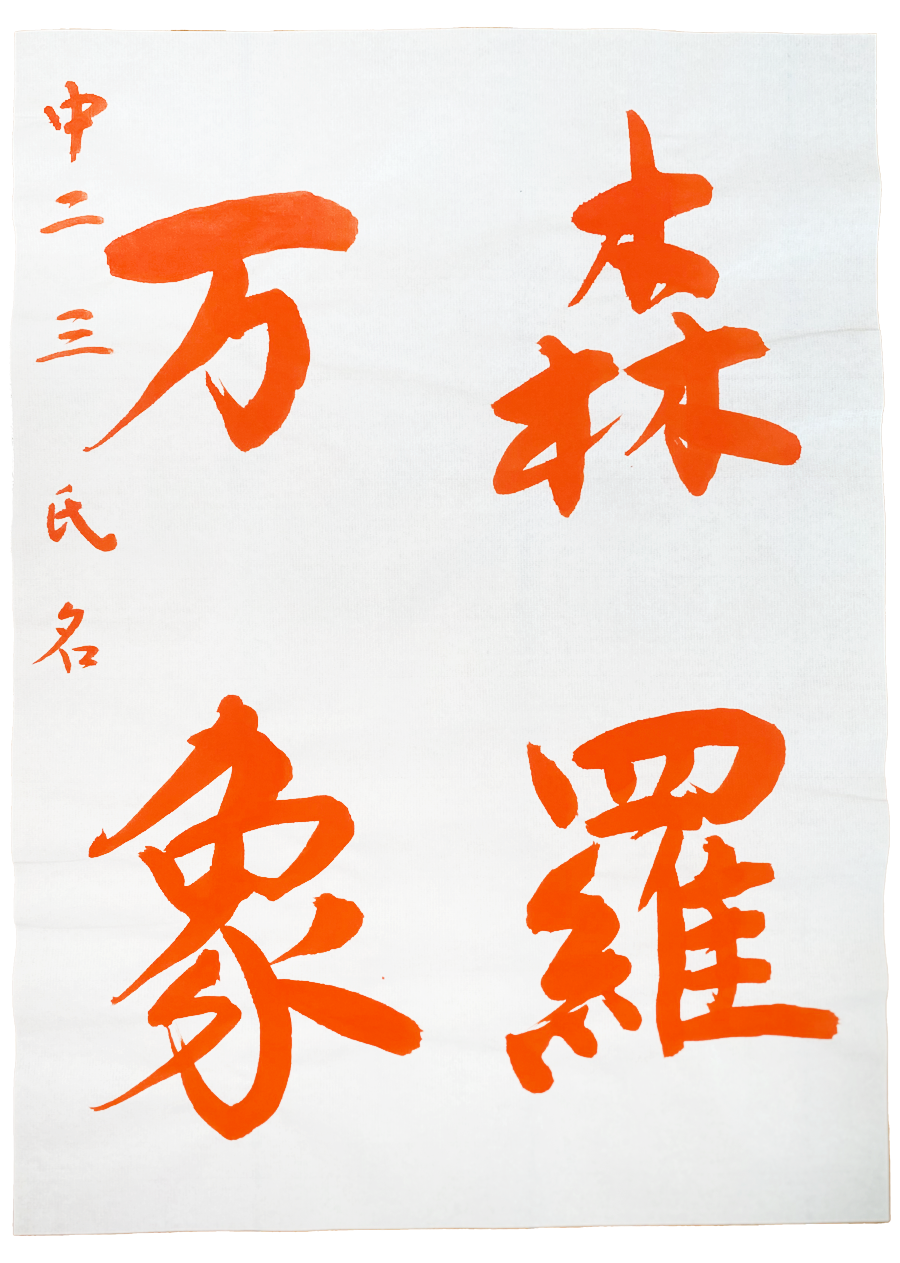 森羅
万象
中二三氏名